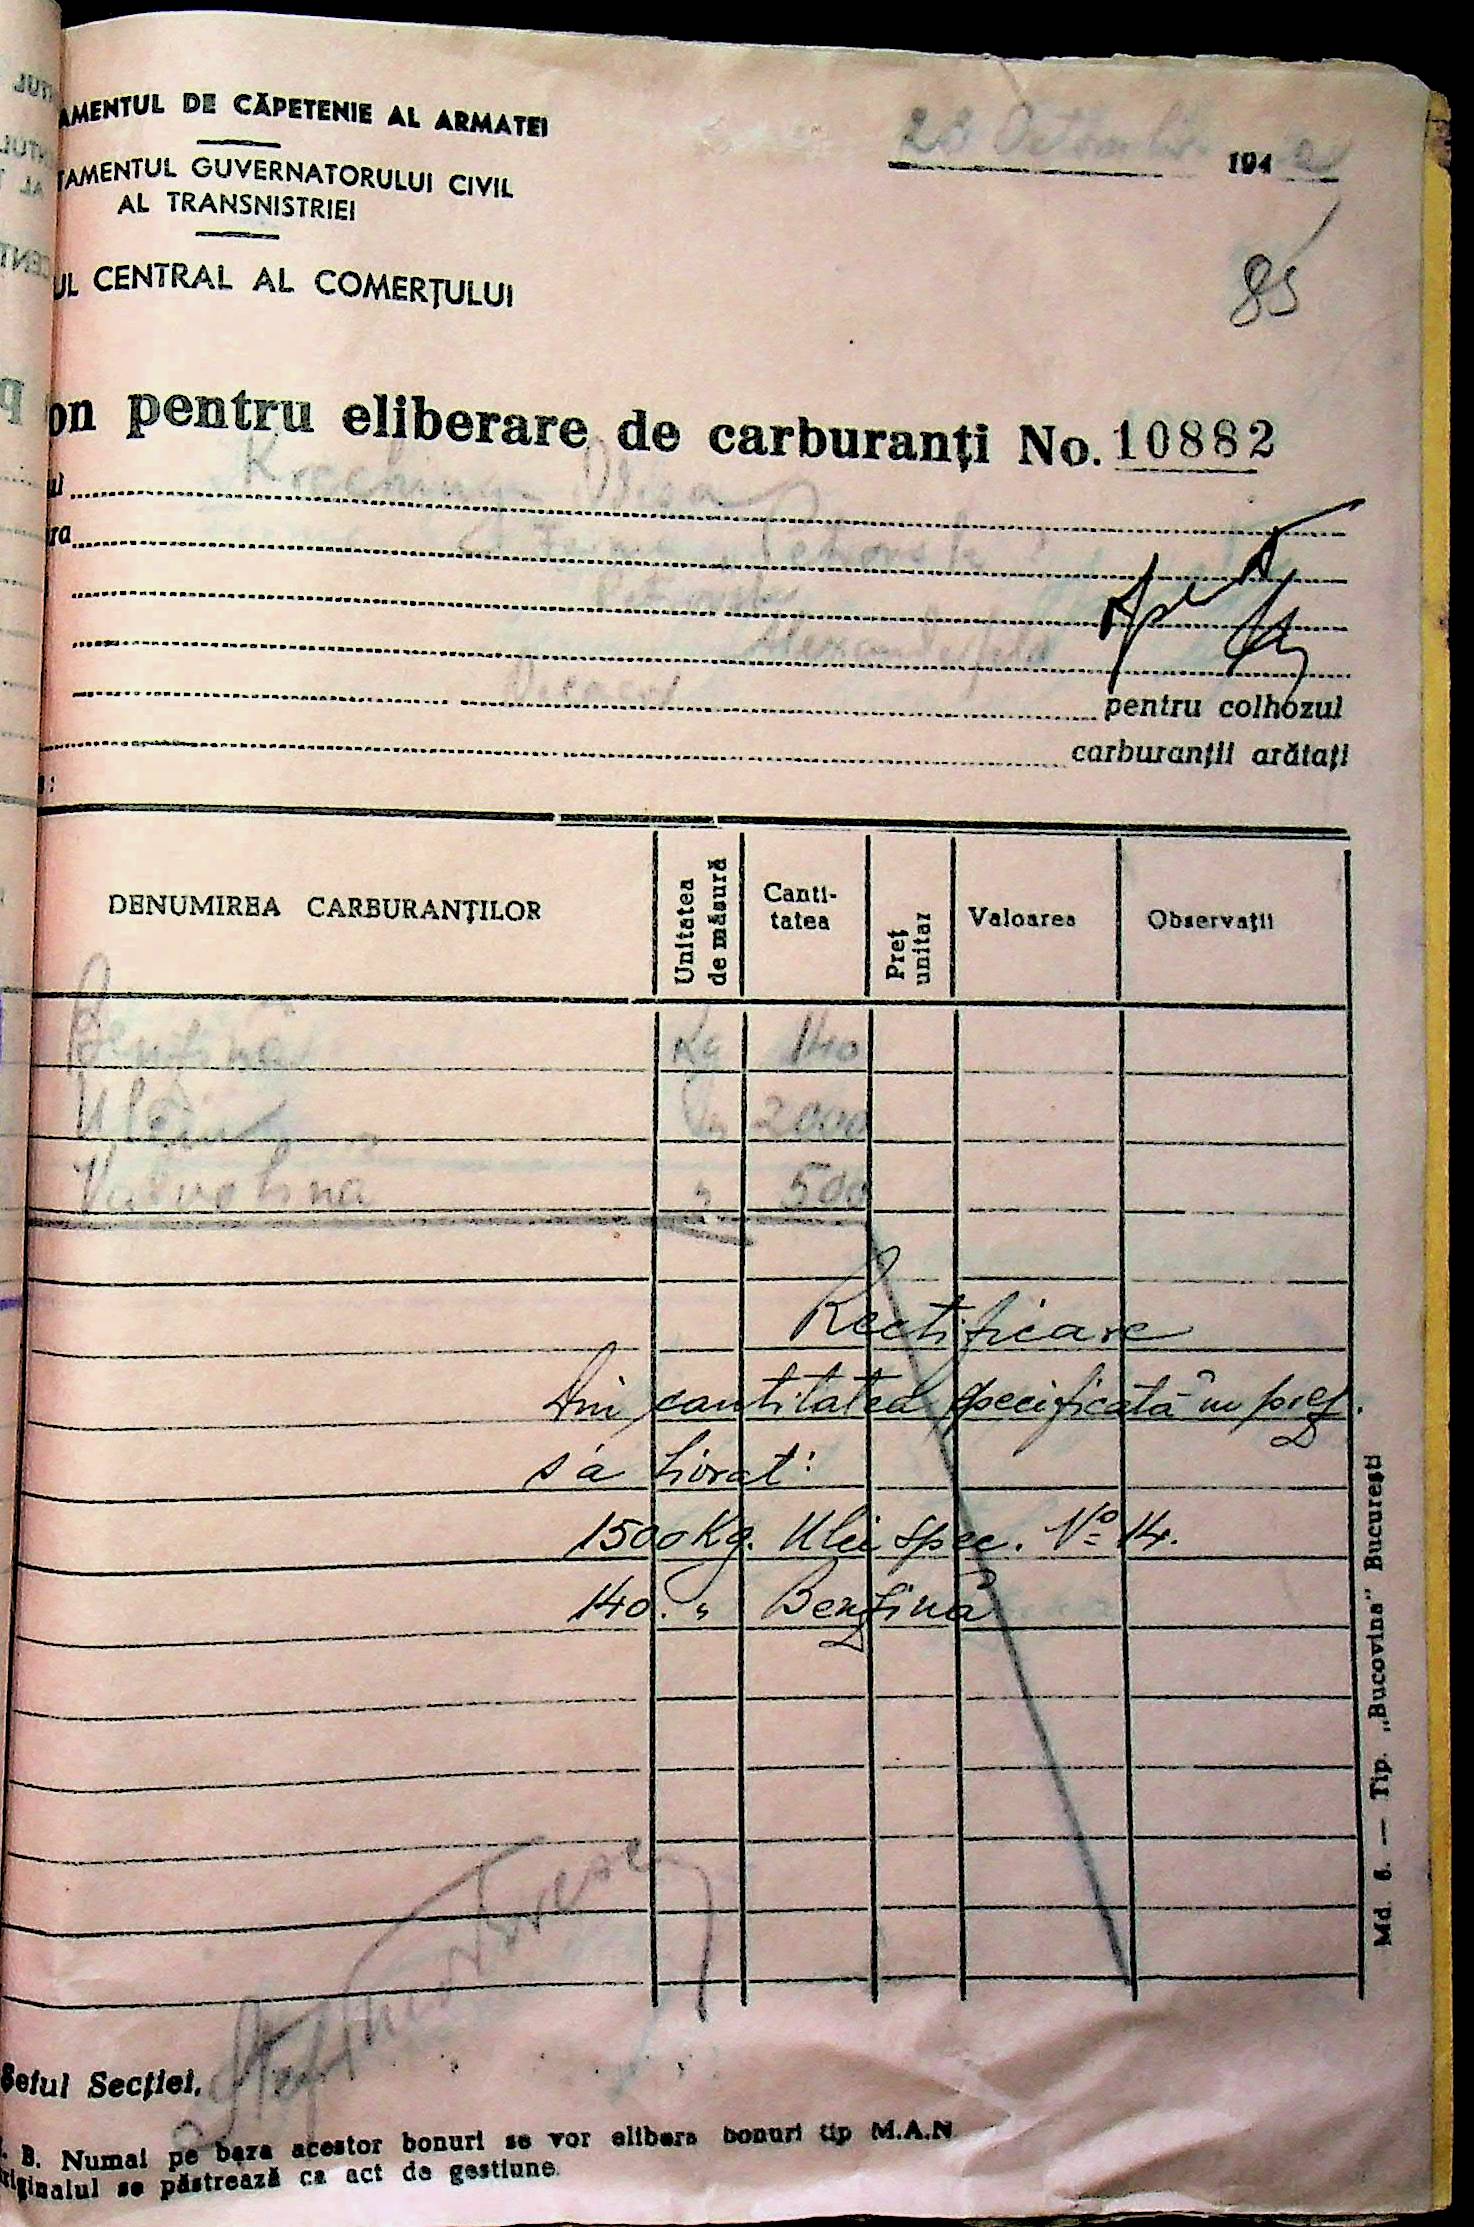 AMENTUL DE CĂPETENIE AL ARMATEI
TAMENTUL GUVERNATORULUI CIVIL
AL TRANSNISTRIEI
UL CENTRAL AL COMERȚULUI
28 Octombrie 194
85
on pentru eliberare de carburanți No. 10882
ul
ra
pentru colhozul
carburanții arătați
:
DENUMIREA CARBURANȚILOR
Unitatea de măsură
Canti-
tatea
Preț unitar
Valoarea
Observații
Benzină Kg 140
Uleiu " 2000
Valvolina " 500
Rectificare
Din cantitatea specificată în prez.
s'a livrat:
1500 Kg. Ulei spec. No 14.
140. " Benzină
Md. 6. — Tip. „Bucovina" București
Șeful Secției,
. B. Numai pe baza acestor bonuri se vor elibera bonuri tip M.A.N
riginalul se păstrează ca act de gestiune.